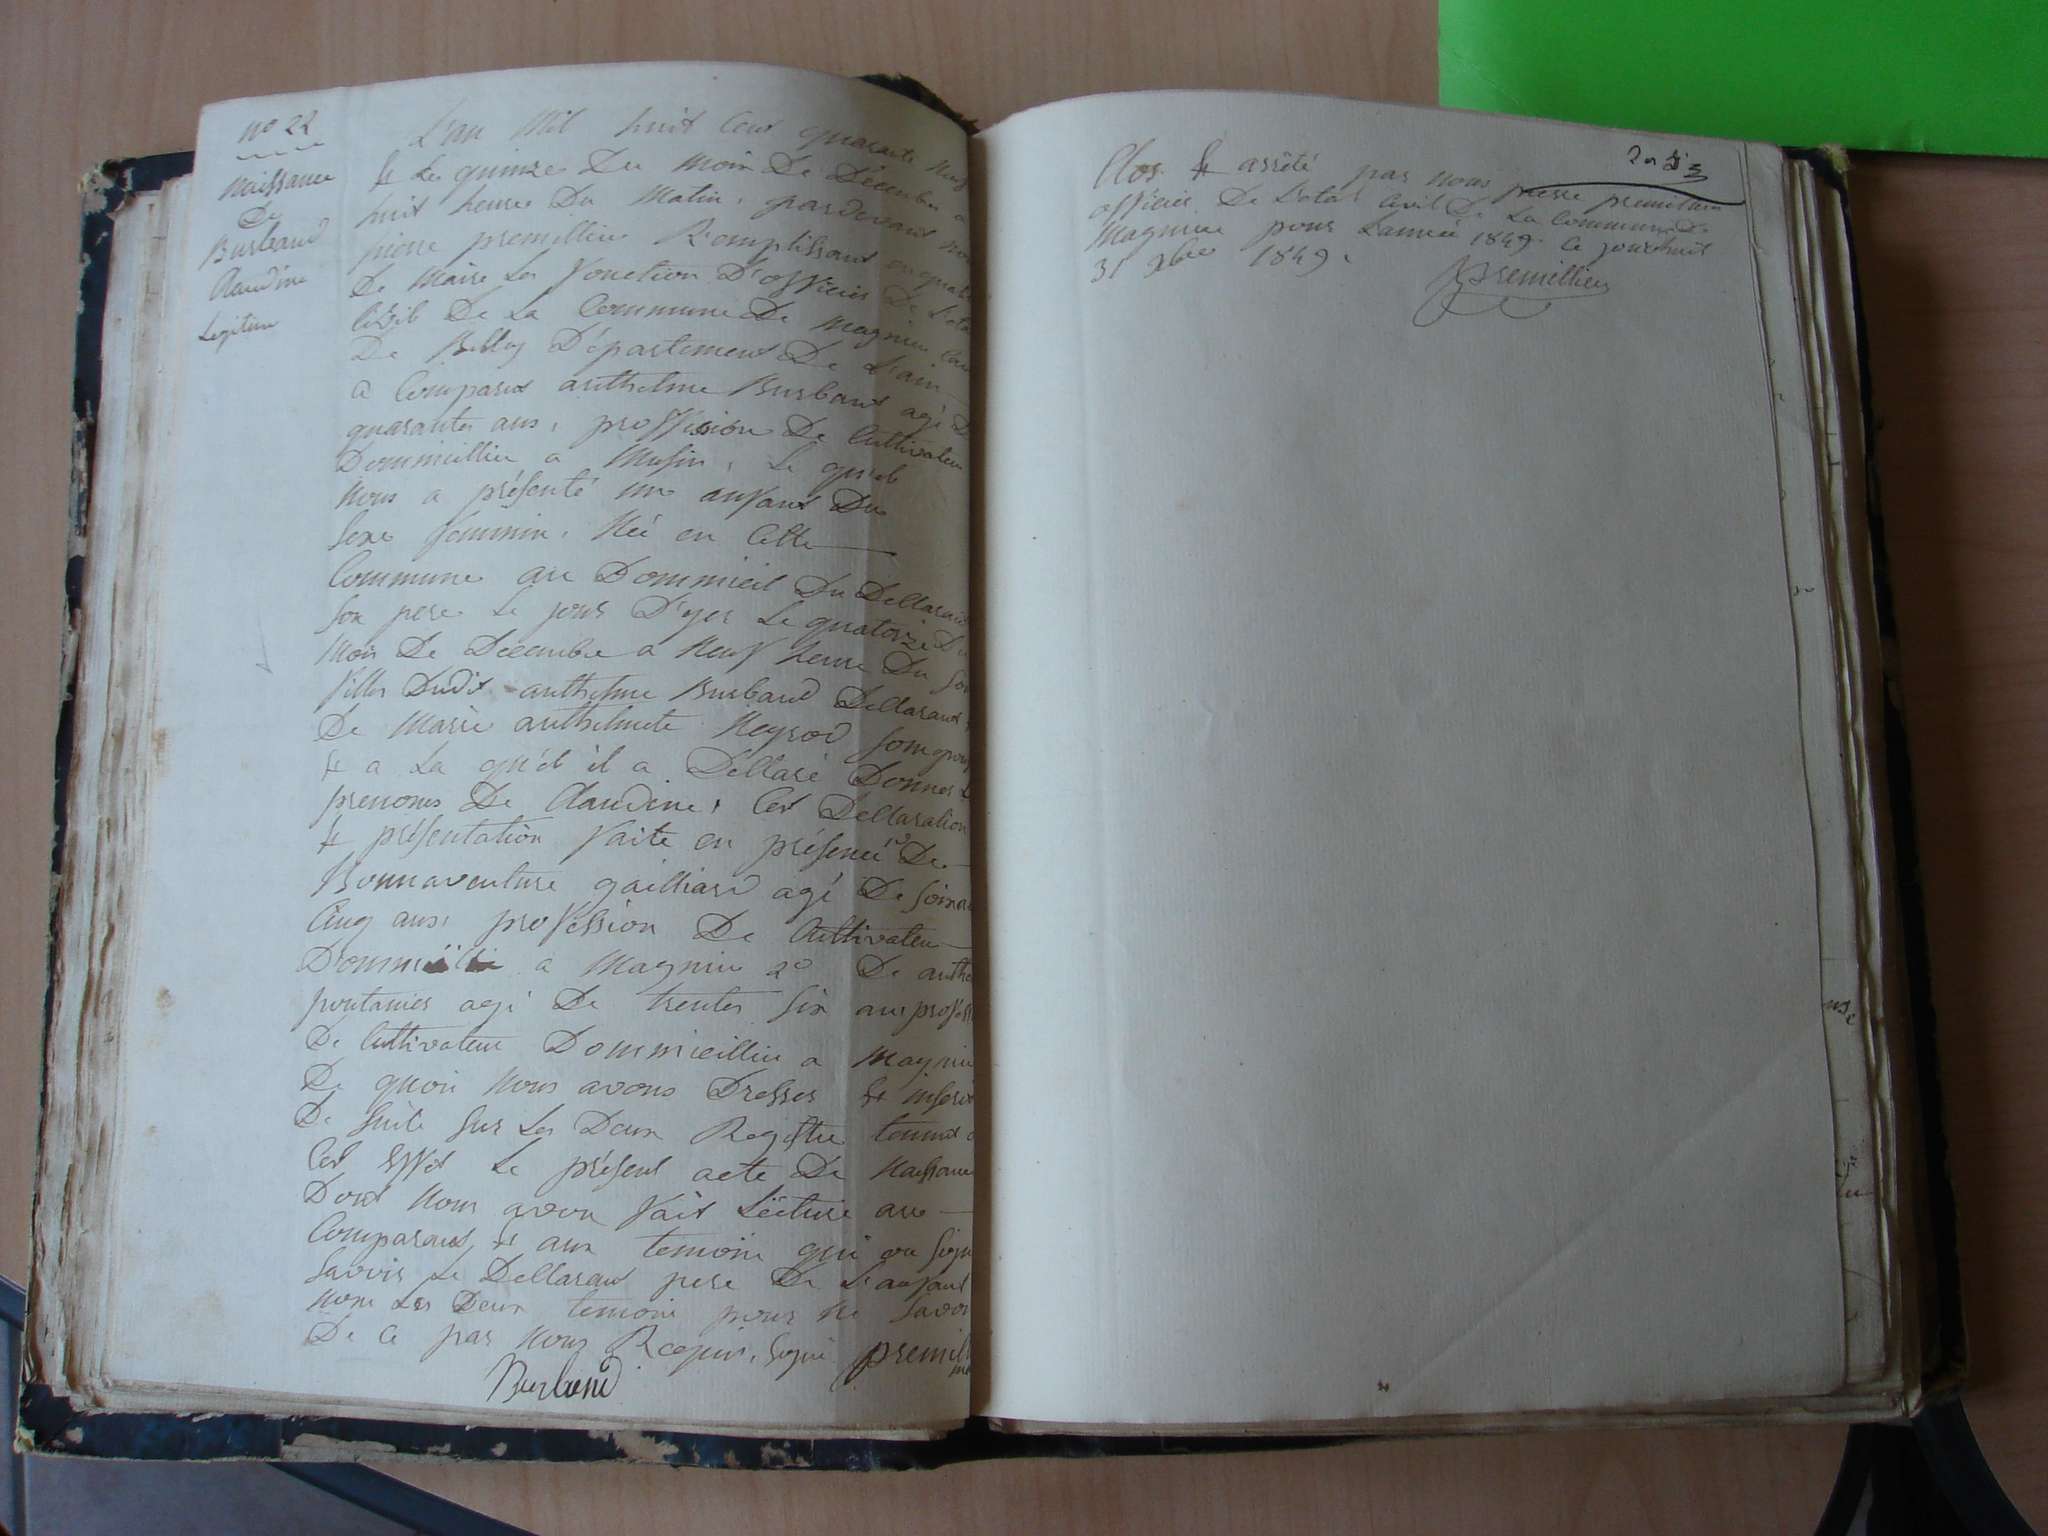 no 22
Naissance
De
Burbaud
Claudine
Legitime
L'an Mil huit Cent quarante Neuf
& Le quinze Du Mois De Décembre a
huit heure Du Matin, pardevant nou
pierre premillieu Remplissant en qual
De Maire Les Fonction D'officier De L'eta
Civil De La Commune De Magnieu Can
De Belley Département De L'ain
a Comparut anthelme Burbaud agé D
quarantes ans, proffission De Cultivateur
Dommicillie a Musin, Le quel
Nous a présenté une anfant Du
Sexe feminin, Née en Cette
Commune au Dommicil Du Dellarant
Son pere Le jour D'yer Le quatorze Du
Mois De Decembre a Neuf heure Du Soi
fille Dudit anthelme Burbaud Dellarant
De Marie anthelmete Neyrod
& a La quel il a Déllaré Donner L
prenoms De Claudine, Cet Dellaration
& présentation faite en présence 1o De
Bonnaventure gailliard agé De Soixan
Cinq ans, profession De Cultivateur
Dommicillie a Magnieu 2o De anthe
pontanier agé De trentes Six ans profess
De Cultivateur Dommicillie a Magnieu
De quoi Nous avons Dresser & inscrit
De Suite Sur Les Deux Registre tenus a
Cet Effet Le présent acte De Naissance
Dont Nous avon fait Lécture au
Comparant & aux temoin qui on Signé
Savoir Le Dellarant pere De L'anfant
Non Les Deux temoin pour Ne Savoir
De Ce par Nous Requis, Signé premill
Burbaud
2n D3
Clos & arrêté par nous pierre premillieu
officier De L'etat Civil De La Commune De
Magnieu pour L'année 1849. Ce jourd'huit
31 Xbre 1849.
Premillieu